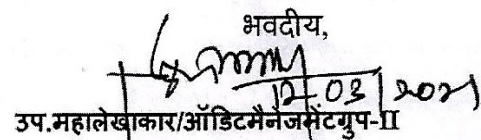 भवदीय,
12-03/2021
उप.महालेखाकार/ऑडिटमैनेजमेंटग्रुप-II